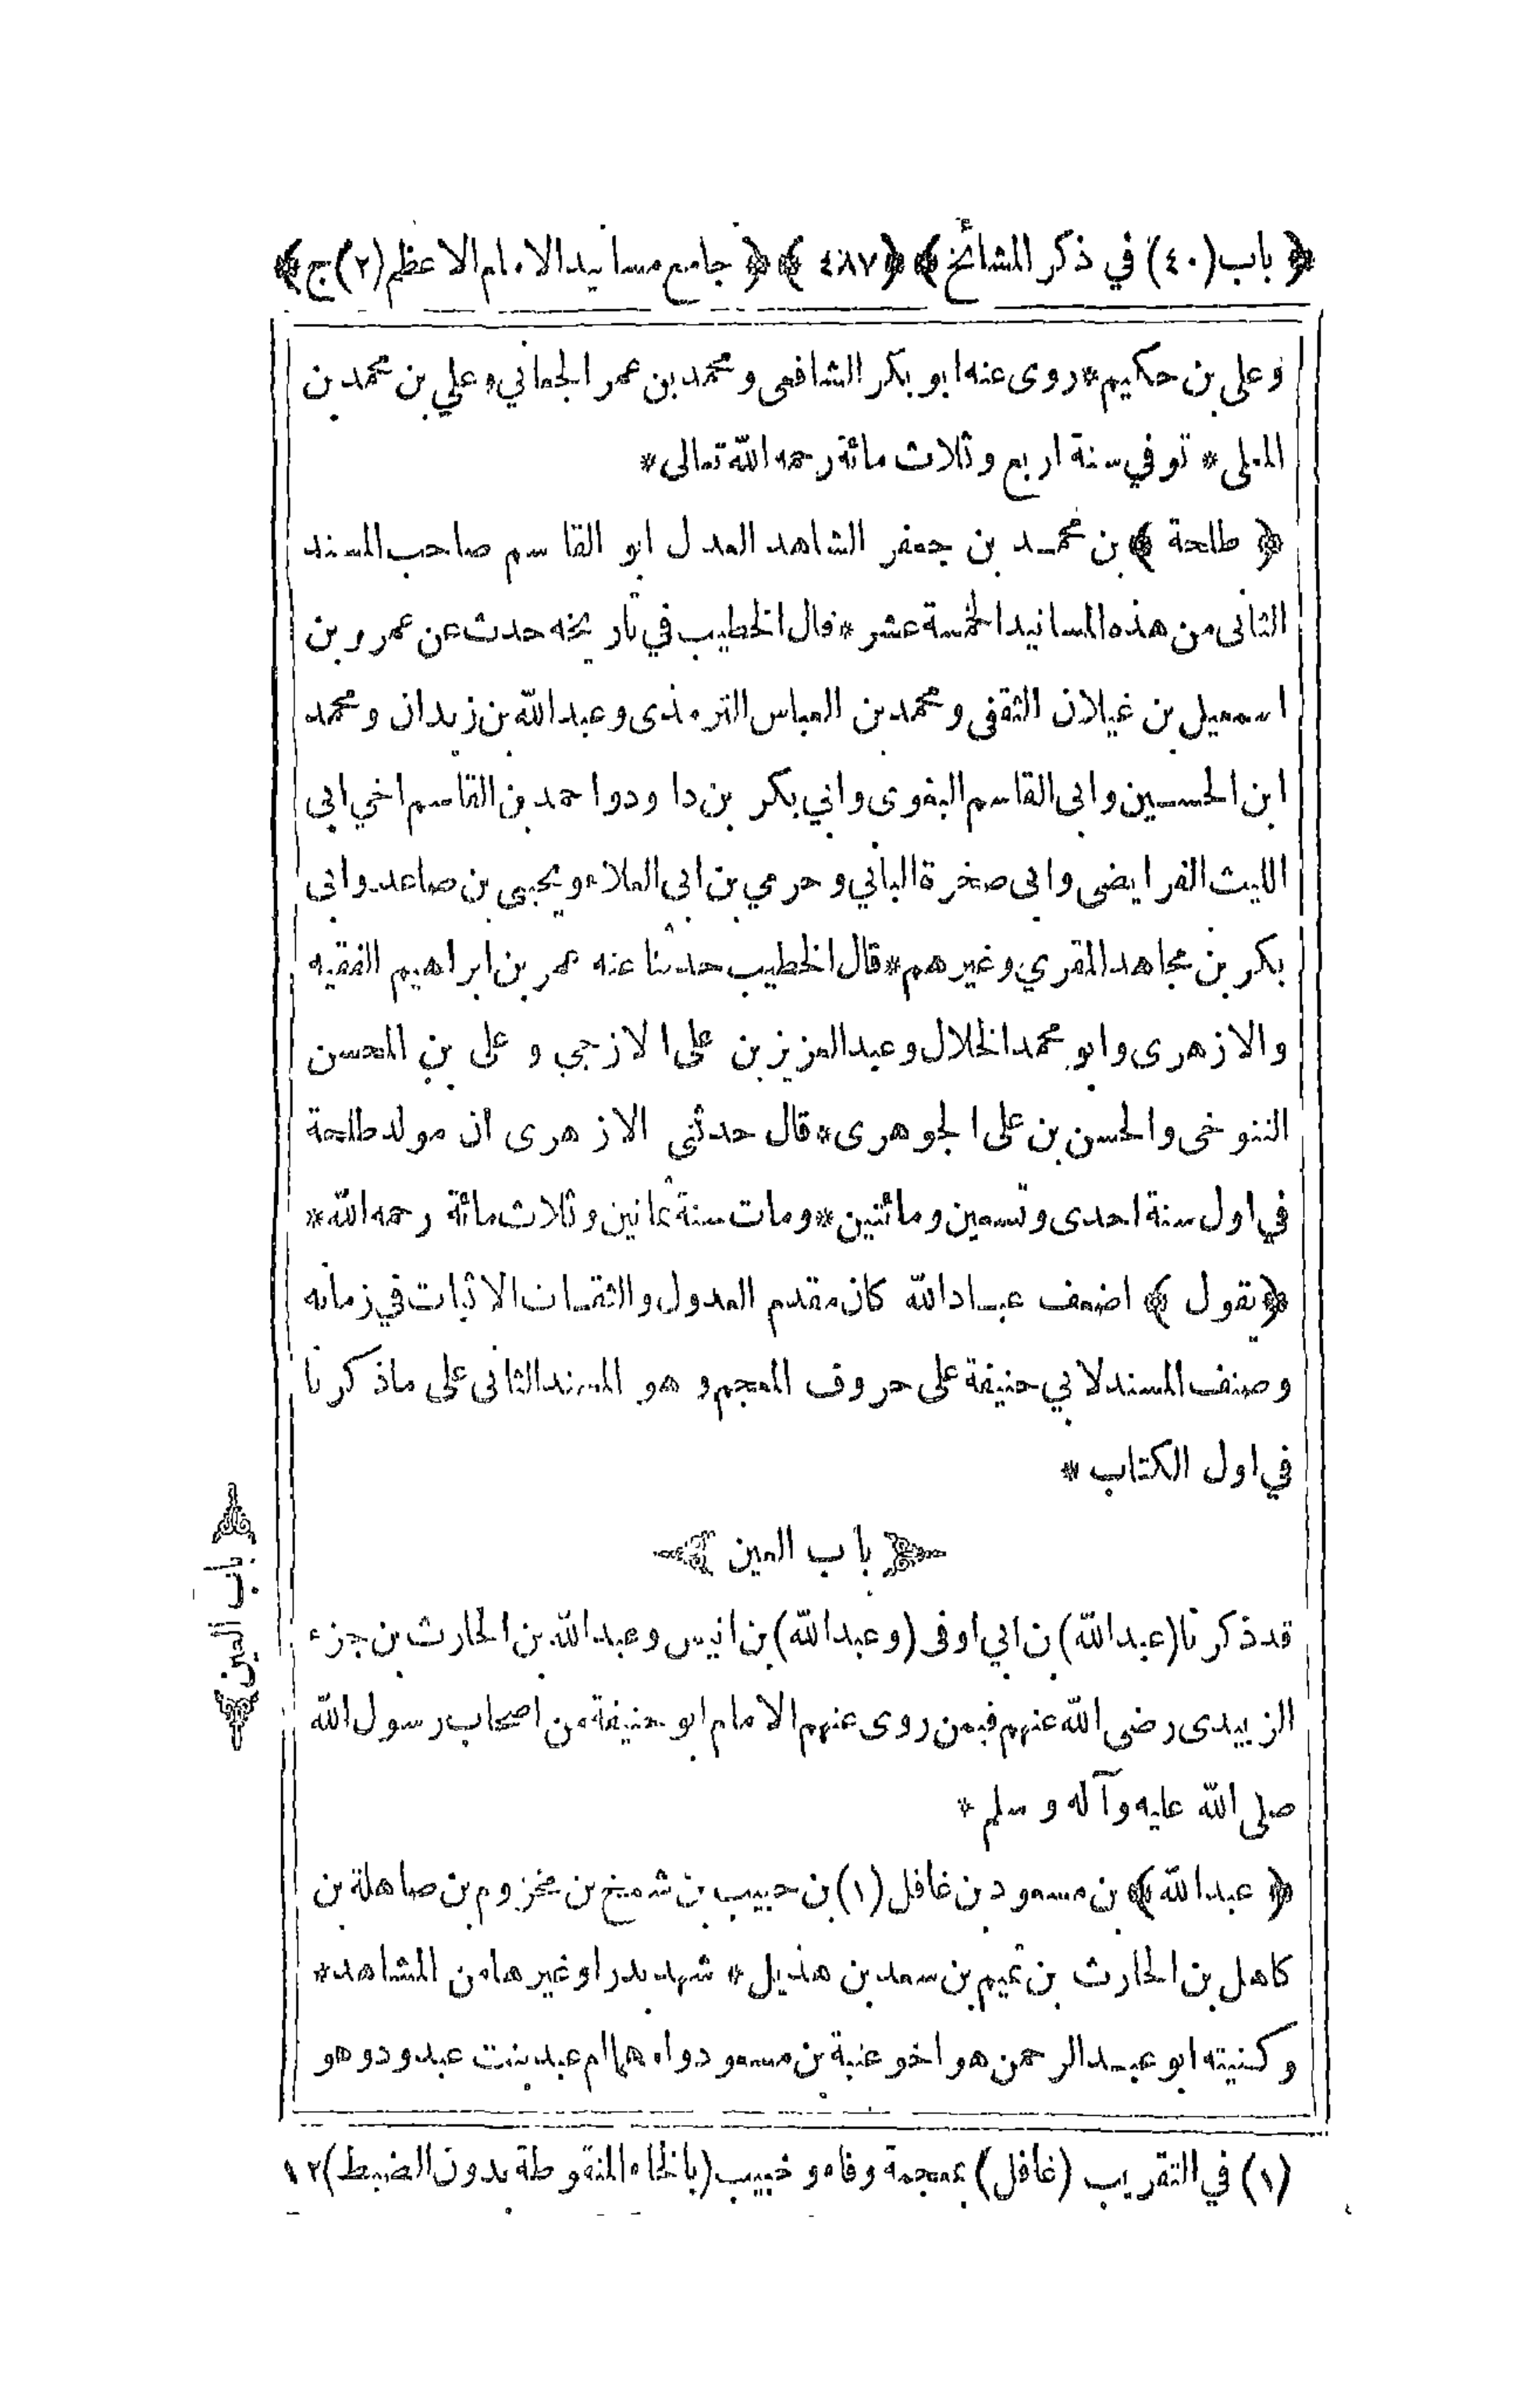 ﴿ باب (٤٠) في ذكر المشائخ ﴾ ﴿ ٤٨٧ ﴾ ﴿ جامع مسانيد الامام الاعظم (٢) ج ﴾
وعلى بن حكيم * روى عنه ابو بكر الشافعى ومحمد بن عمر الجعاني وعلي بن محمد بن
المعلى * توفي سنة اربع وثلاث مائة رحمه الله تعالى *
﴿ طلحة ﴾ بن محمد بن جعفر الشاهد العدل ابو القاسم صاحب المسند
الثانى من هذه المسانيد الخمسة عشر * قال الخطيب في تاريخه حدث عن عمرو بن
اسمعيل بن غيلان الثقفى ومحمد بن العباس الترمذى وعبد الله بن زيدان ومحمد
ابن الحسين وابى القاسم البغوى وابي بكر بن داود واحمد بن القاسم اخي ابى
الليث الفرايضى وابى صخرة الباني وحرمي بن ابى العلاء ويحيى بن صاعد وابى
بكر بن مجاهد المقري وغيرهم * قال الخطيب حدثنا عنه عمر بن ابراهيم الفقيه
والازهرى وابو محمد الخلال وعبد العزيز بن على الازجي وعلى بن المحسن
التنوخى والحسن بن على الجوهرى * قال حدثنى الازهرى ان مولد طلحة
في اول سنة احدى وتسعين ومائتين * ومات سنة ثمانين وثلاث مائة رحمه الله *
﴿ يقول ﴾ اضعف عباد الله كان مقدم العدول والثقات الاثبات في زمانه
وصنف المسند لابي حنيفة على حروف المعجم وهو المسند الثانى على ماذكرنا
في اول الكتاب *
﴿ باب العين ﴾
﴿ باب العين ﴾
قد ذكرنا (عبد الله) بن ابي اوفى (وعبد الله) بن انيس وعبد الله بن الحارث بن جزء
الزبيدى رضى الله عنهم فيمن روى عنهم الامام ابو حنيفة من اصحاب رسول الله
صلى الله عليه وآله وسلم *
﴿ عبد الله ﴾ بن مسعود بن غافل (١) بن حبيب بن شمخ بن مخزوم بن صاهلة بن
كاهل بن الحارث بن تميم بن سعد بن هذيل * شهد بدرا وغيرها من المشاهد *
وكنيته ابو عبد الرحمن هو اخو عتبة بن مسعود وامهما ام عبد بنت عبد ود وهو
(١) في التقريب (غافل) بمعجمة وفاء و خبيب (بالخاء المنقوطة بدون الضبط) ١٢